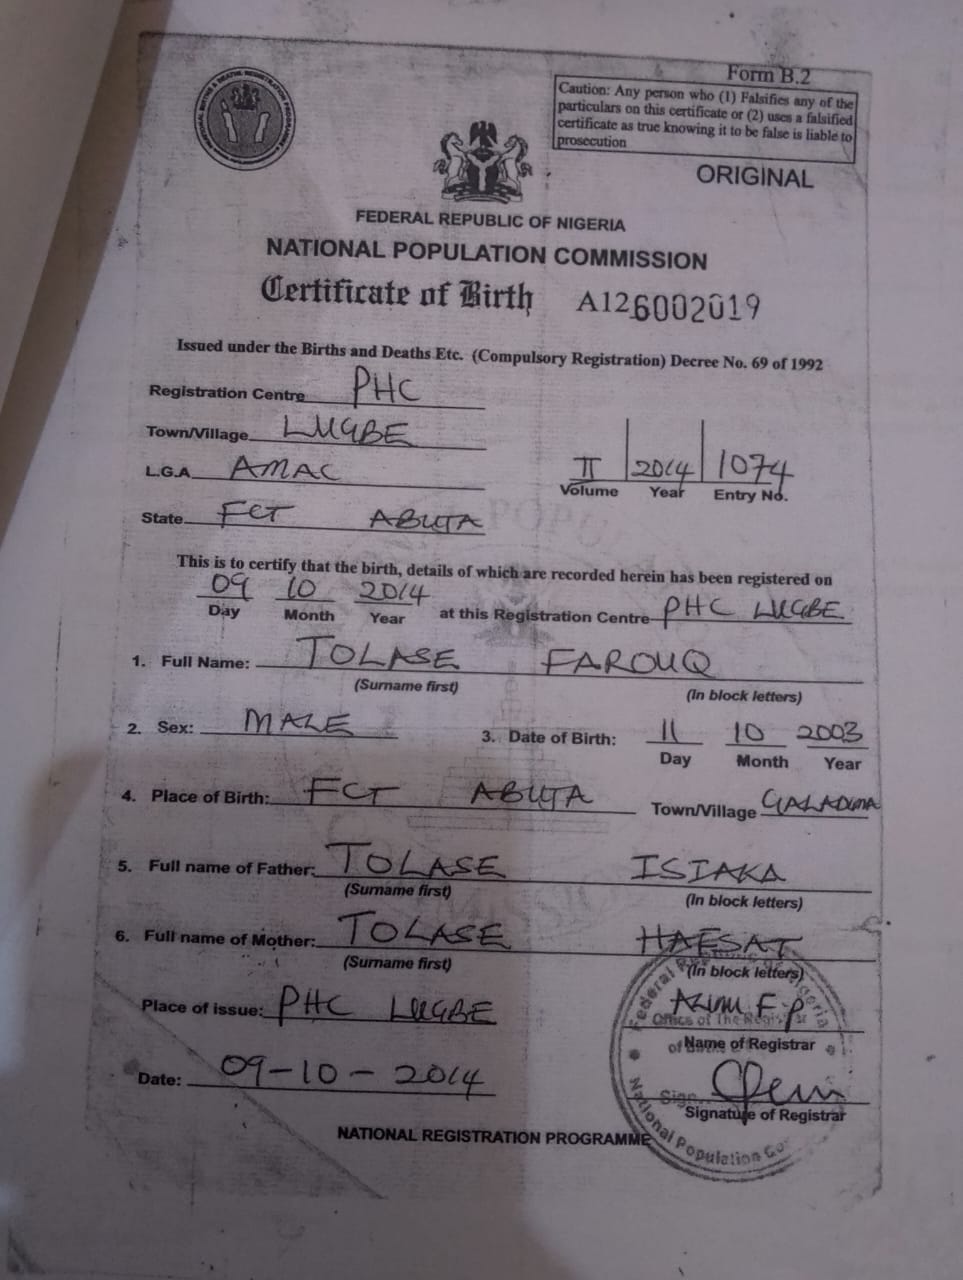 Form B.2
Caution: Any person who (1) Falsifies any of the
particulars on this certificate or (2) uses a falsified
certificate as true knowing it to be false is liable to
prosecution
ORIGINAL
FEDERAL REPUBLIC OF NIGERIA
NATIONAL POPULATION COMMISSION
Certificate of Birth A126002019
Issued under the Births and Deaths Etc. (Compulsory Registration) Decree No. 69 of 1992
Registration Centre PHC
Town/Village LUGBE
L.G.A AMAC
II 2014 1074
Volume Year Entry No.
State FCT ABUJA
This is to certify that the birth, details of which are recorded herein has been registered on
09 10 2014
Day Month Year at this Registration Centre PHC LUGBE
1. Full Name: TOLASE FAROUQ
(Surname first) (In block letters)
2. Sex: MALE 3. Date of Birth: 11 10 2003
Day Month Year
4. Place of Birth: FCT ABUJA Town/Village GALADIMA
5. Full name of Father: TOLASE ISIAKA
(Surname first) (In block letters)
6. Full name of Mother: TOLASE HAFSAT
(Surname first) (In block letters)
Place of issue: PHC LUGBE
F. P
Name of Registrar
Date: 09-10-2014
Signature of Registrar
NATIONAL REGISTRATION PROGRAMME
National Population